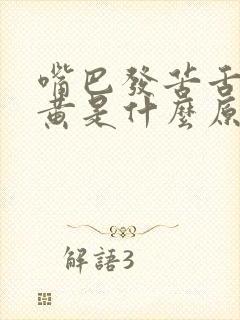 嘴巴發苦舌
黃是什麼原
解語3